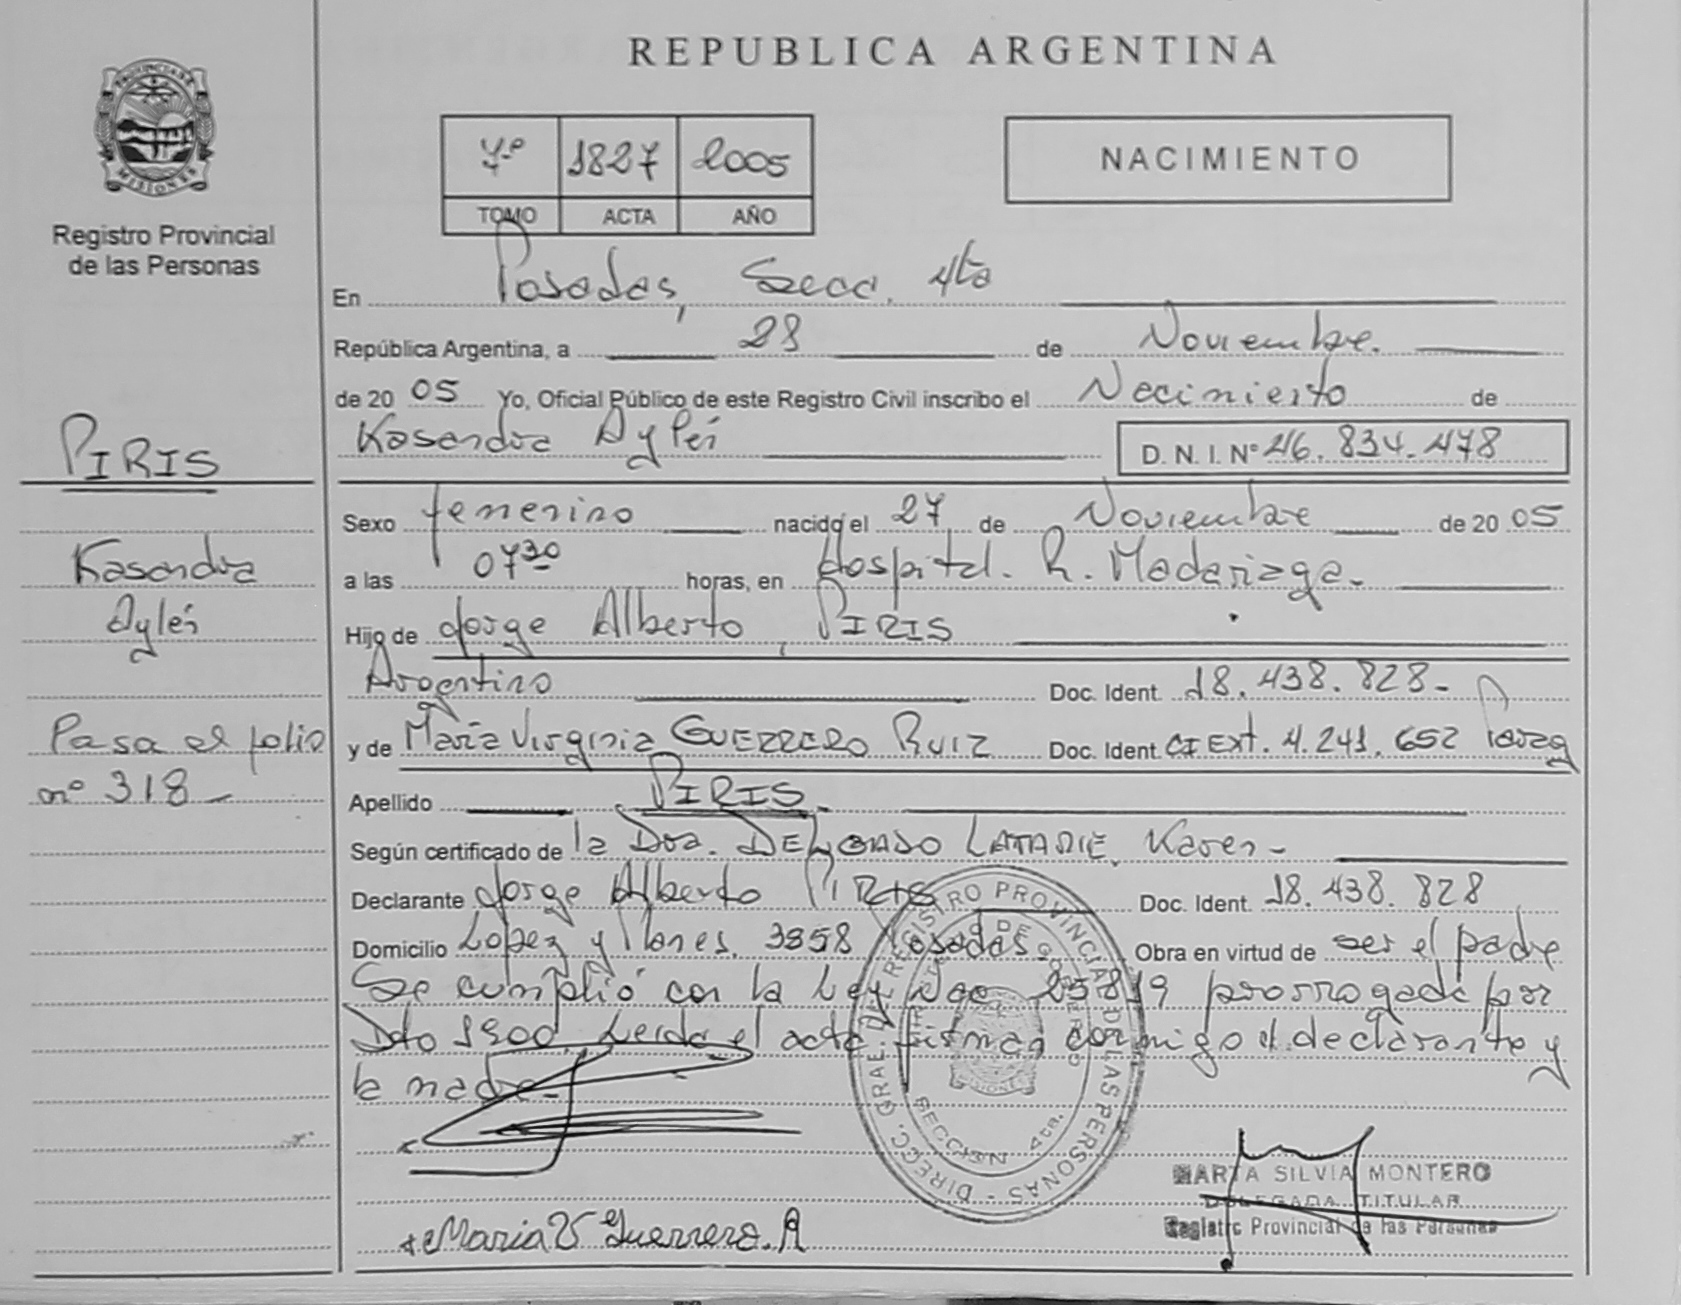 REPUBLICA ARGENTINA
PROVINCIA DE MISIONES
Registro Provincial
de las Personas
7º 1827 2005
TOMO ACTA AÑO
NACIMIENTO
En Posadas, Secc. 4ta
República Argentina, a 28 de Noviembre.
de 20 05 Yo, Oficial Público de este Registro Civil inscribo el Nacimiento de
Kasandra Aylén D. N. I. Nº 46.834.478
PIRIS
Kasandra
Aylén
Pasa al folio
nº 318
Sexo femenino nacido el 27 de Noviembre de 20 05
a las 07 30 horas, en Hospital. R. Madariaga.
Hijo de Jorge Alberto PIRIS
Argentino Doc. Ident. 18.438.828-
y de María Virginia GUERRERO RUIZ Doc. Ident. CI Ext. 4.241.652
Apellido PIRIS.
Según certificado de la Dra. DELGADO LATADIE, Karen-
Declarante Jorge Alberto PIRIS Doc. Ident. 18.438.828
Domicilio Lopez y Planes. 3858 Posadas. Obra en virtud de ser el padre
Se cumplió con la Ley Nac 25819 prorrogada por
Dto 1900. Leída el acta firman conmigo el declarante y
la madre-
DIRECC. GRAL. DEL REGISTRO PROVINCIAL DE LAS PERSONAS
MINISTERIO DE GOBIERNO
SECCION 4ta.
MARTA SILVIA MONTERO
DELEGADA TITULAR
Registro Provincial de las Personas
Maria V Guerrero. R